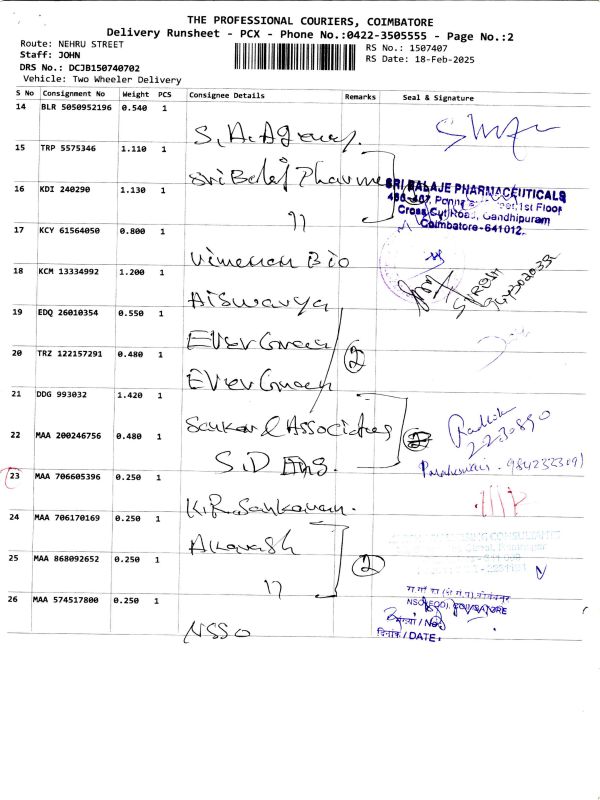 THE PROFESSIONAL COURIERS, COIMBATORE
Delivery Runsheet - PCX - Phone No.:0422-3505555 - Page No.:2
Route: NEHRU STREET
RS No.: 1507407
Staff: JOHN
RS Date: 18-Feb-2025
DRS No.: DCJB150740702
Vehicle: Two Wheeler Delivery
S No Consignment No Weight PCS Consignee Details Remarks Seal & Signature
14 BLR 5050952196 0.540 1
S. A. Agency.
15 TRP 5575346 1.110 1
Sri Balaji Pharma
SRI BALAJE PHARMACEUTICALS
16 KDI 240290 1.130 1
1st Floor
Cross Cut Road, Gandhipuram
Coimbatore-641012.
17 KCY 61564050 0.800 1
Bio
18 KCM 13334992 1.200 1
Aiswarya
SURESH
19 EDQ 26010354 0.550 1
Ever Green
2
20 TRZ 122157291 0.480 1
Ever Green
21 DDG 993032 1.420 1
Sankar & Associates
2230890
22 MAA 200246756 0.480 1
S.D Eng.
23 MAA 706605396 0.250 1
K.R. Sankaran.
24 MAA 706170169 0.250 1
Akavash
2
25 MAA 868092652 0.250 1
26 MAA 574517800 0.250 1
NSSO
NSO(FOD), COIMBATORE
दिनांक / DATE: